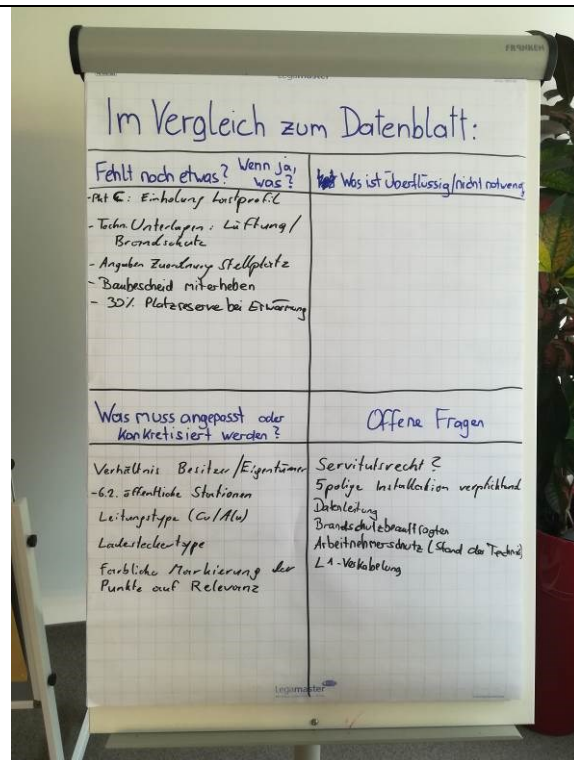 FRANKEN
Legamaster
Im Vergleich zum Datenblatt:
Fehlt noch etwas? Wenn ja,
was?
- Pkt C: Einholung Lastprofil
- Techn. Unterlagen: Lüftung/
Brandschutz
- Angaben Zuordnung Stellplatz
- Baubescheid miterheben
- 30% Platzreserve bei Erwärmung
Was ist überflüssig/nicht notwend
Was muss angepasst oder
konkretisiert werden?
Verhältnis Besitzer/Eigentümer
-6.2. öffentliche Stationen
Leitungstype (Cu/Alu)
Ladesteckertype
farbliche Markierung der
Punkte auf Relevanz
Offene Fragen
Servitutsrecht?
5 polige Installation verpflichtend
Datenleitung
Brandschutzbeauftragten
Arbeitnehmerschutz (Stand der Technik)
L1-Verkabelung
Legamaster